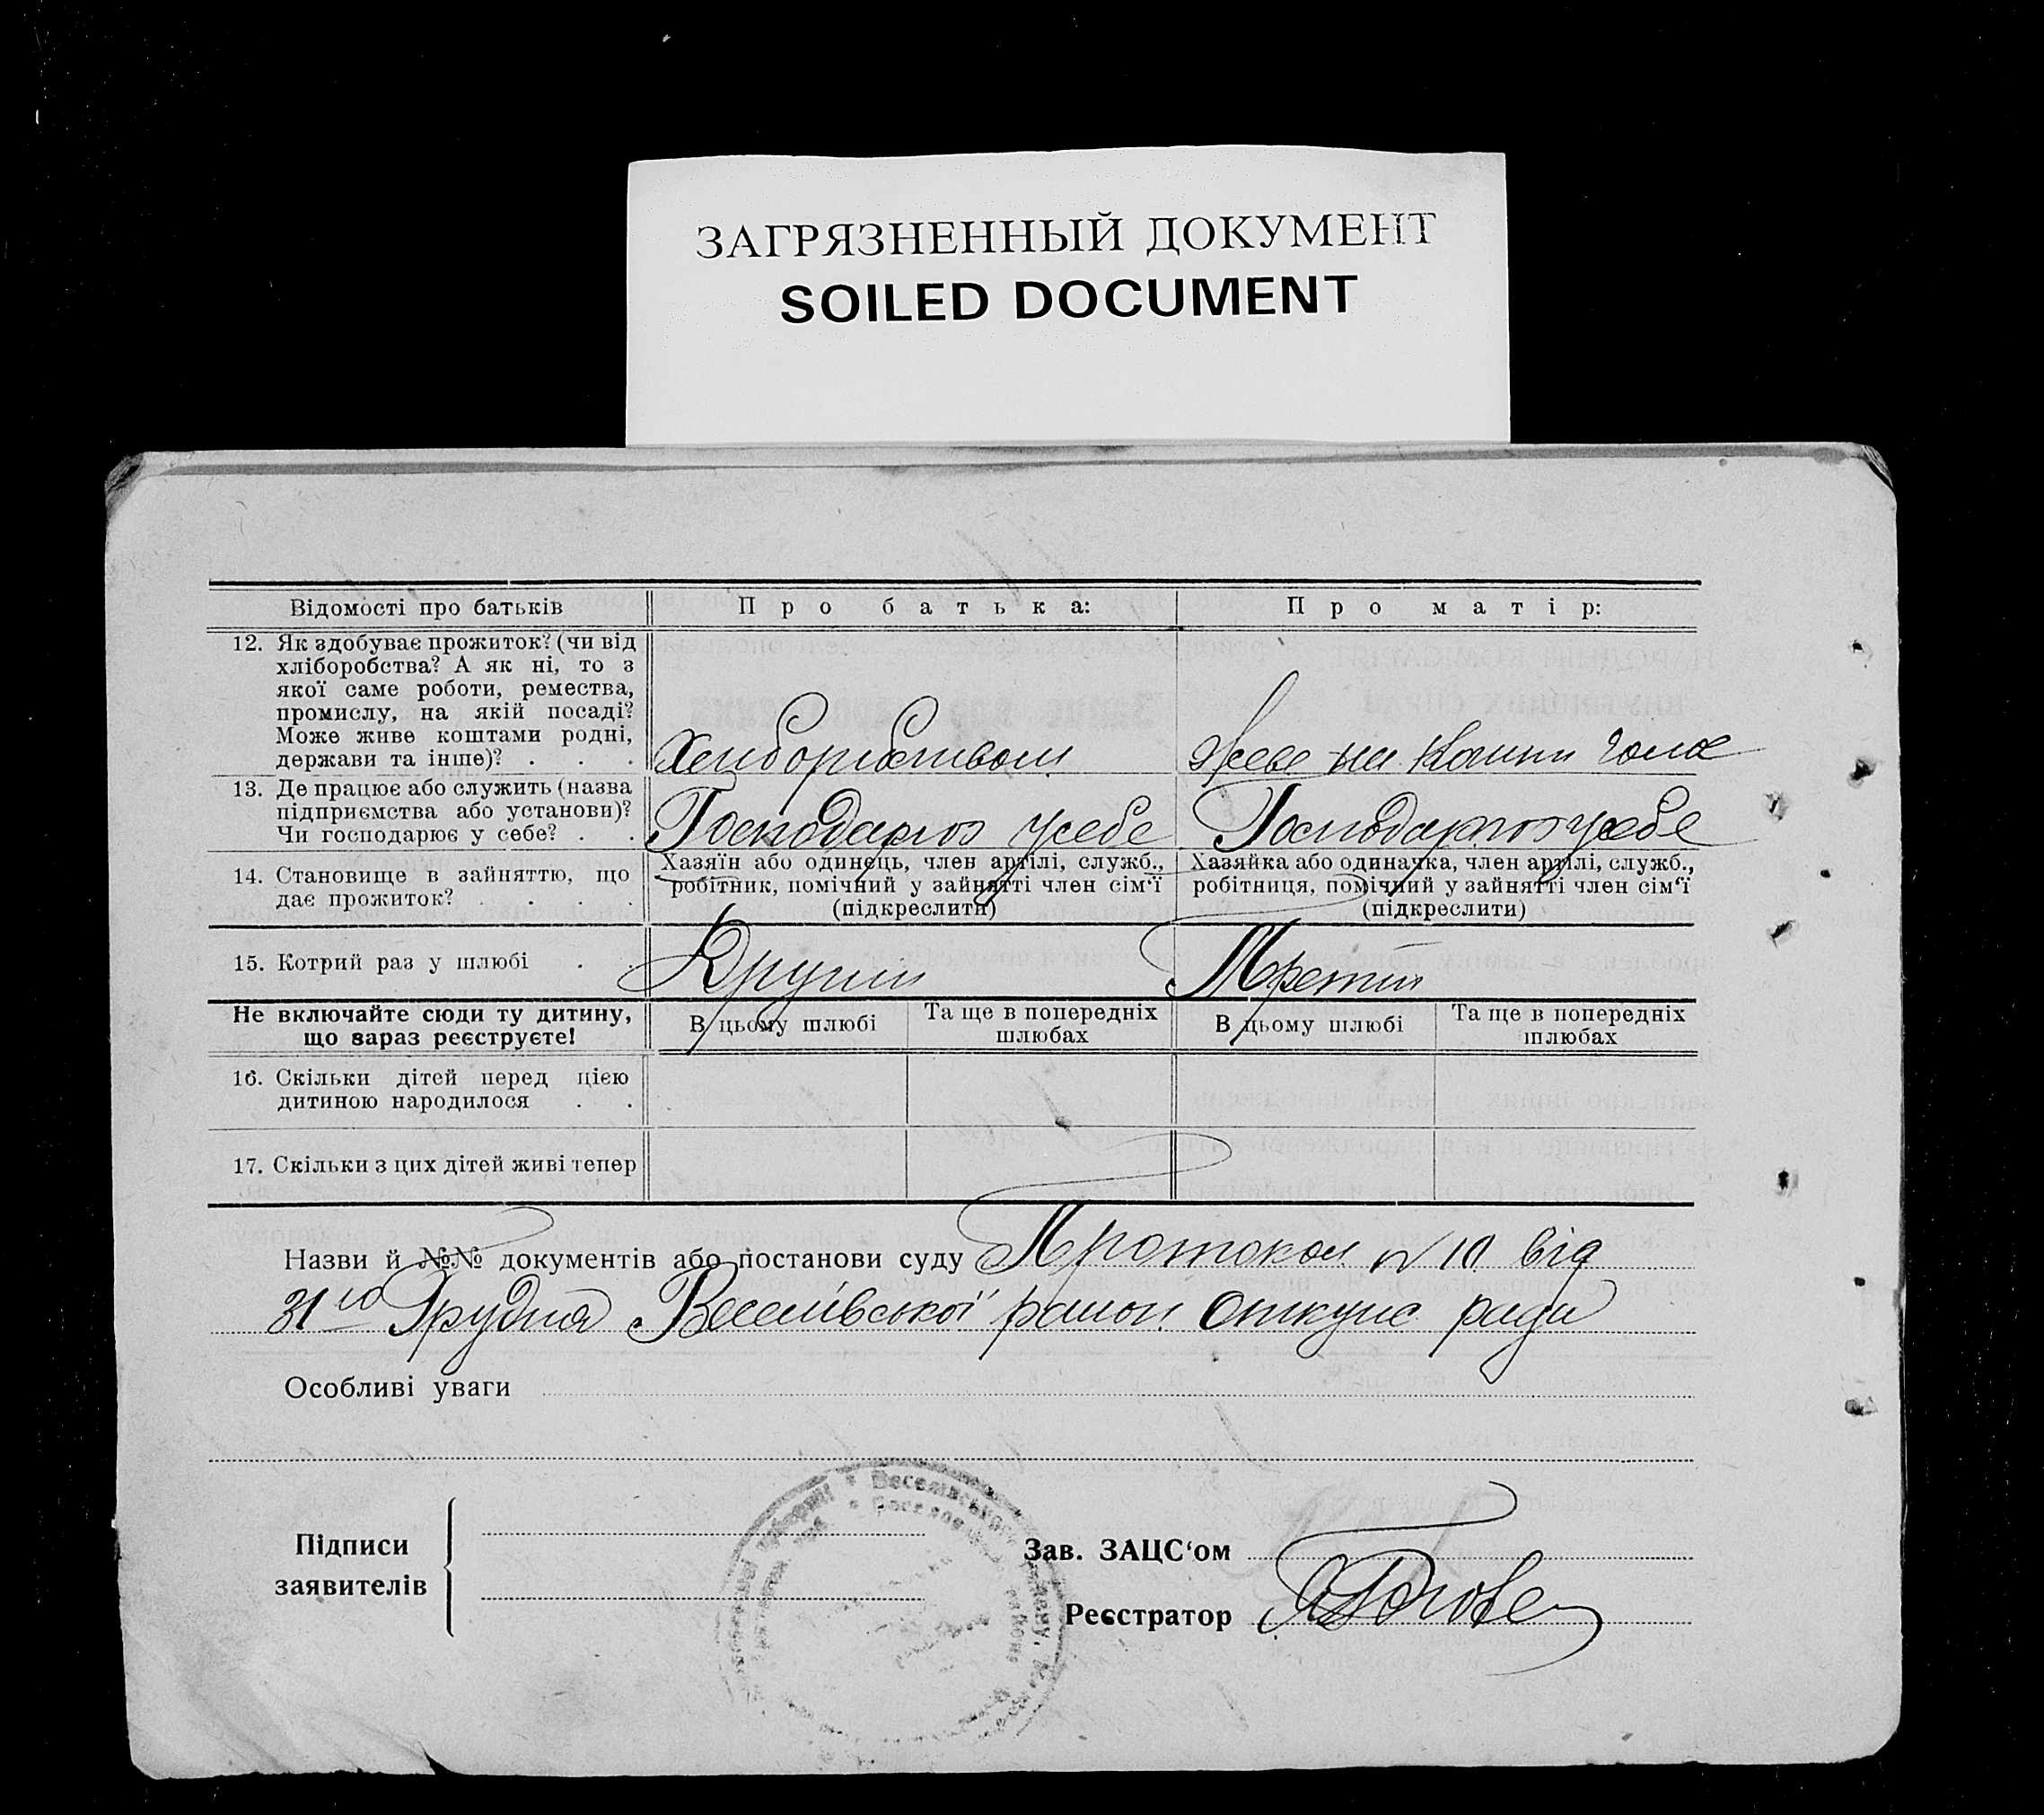 ЗАГРЯЗНЕННЫЙ ДОКУМЕНТ
SOILED DOCUMENT
Відомості про батьків
Про батька:
Про матір:
12. Як здобуває прожиток? (чи від
хліборобства? А як ні, то з
якої саме роботи, ремества,
промислу, на якій посаді?
Може живе коштами родні,
держави та інше)? . . .
Хліборобством
Живе на кошти
13. Де працює або служить (назва
підприємства або установи)?
Чи господарює у себе? . .
Господарює у себе
Господарює у себе
14. Становище в зайняттю, що
дає прожиток? . . . .
Хазяїн або одинець, член артілі, служб.,
робітник, помічний у зайнятті член сім‘ї
(підкреслити)
Хазяйка або одиначка, член артілі, служб.,
робітниця, помічний у зайнятті член сім‘ї
(підкреслити)
15. Котрий раз у шлюбі . .
Другий
Третий
Не включайте сюди ту дитину,
що зараз реєструєте!
В цьому шлюбі
Та ще в попередніх
шлюбах
В цьому шлюбі
Та ще в попередніх
шлюбах
16. Скільки дітей перед цією
дитиною народилося . .
17. Скільки з цих дітей живі тепер
Назви й №№ документів або постанови суду Протокол N 10 від
31го Грудня Веселівської район опікунс ради
Особливі уваги
Підписи
заявителів
Зав. ЗАЦС‘ом
Реєстратор